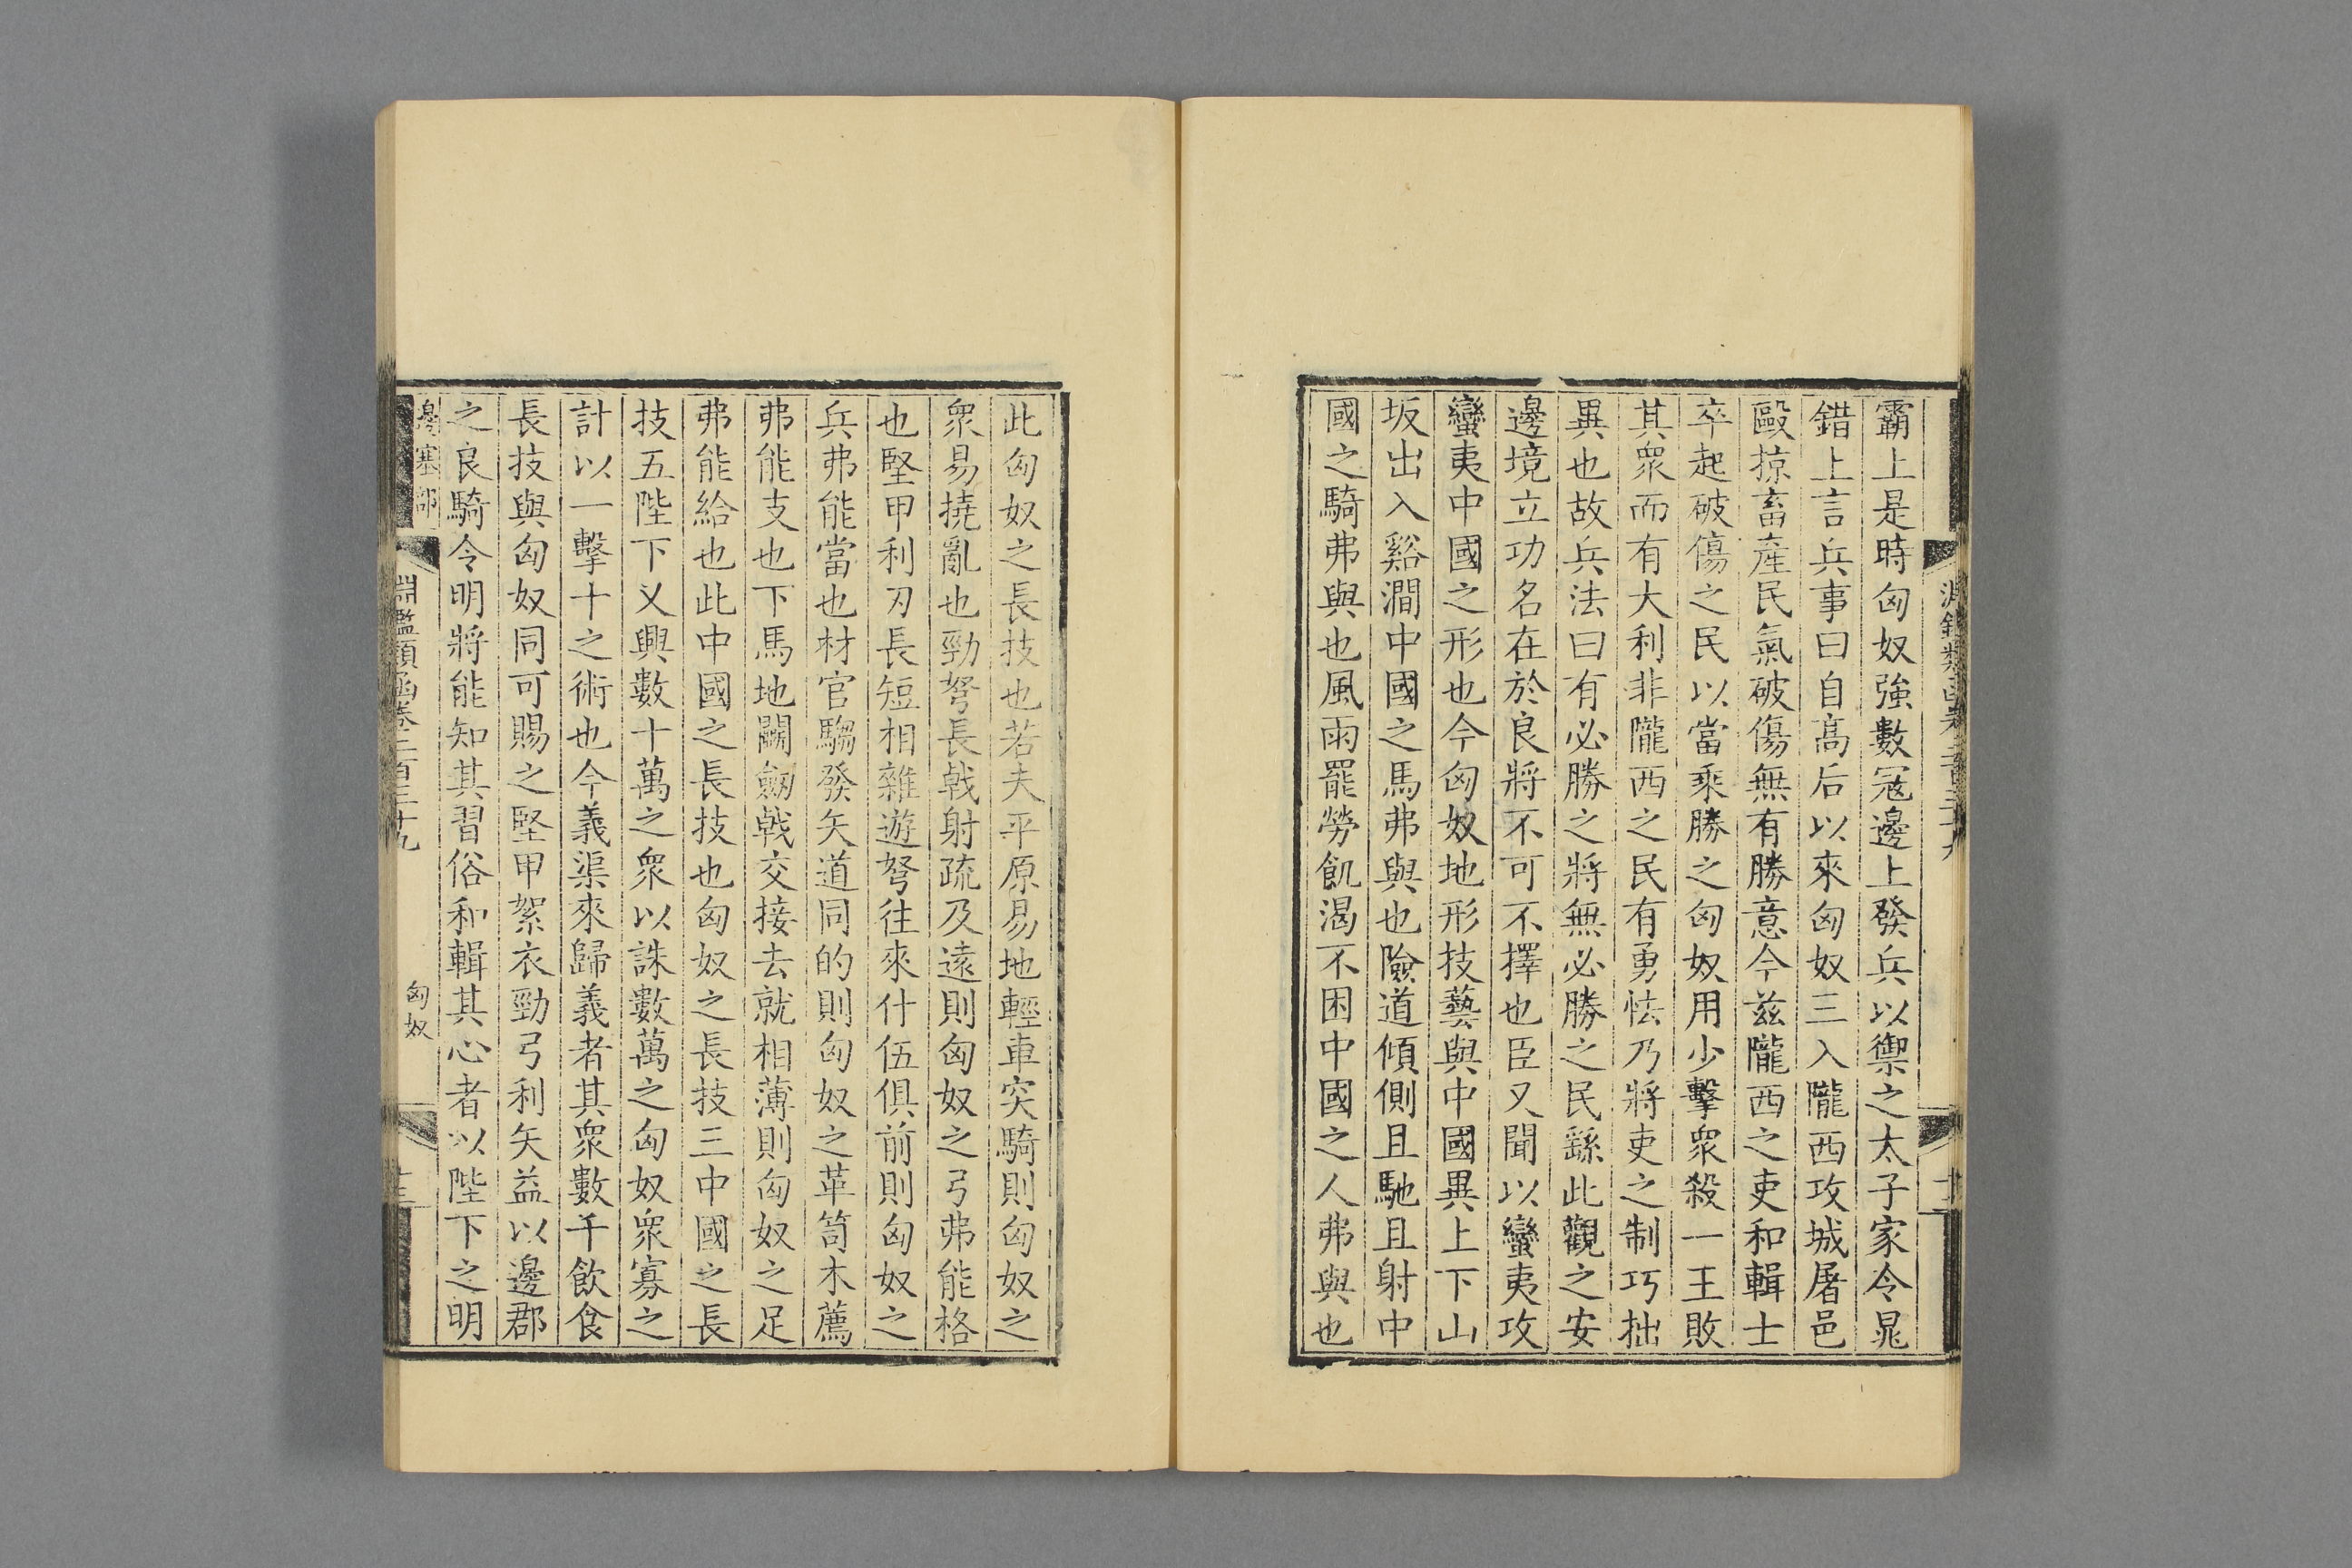 霸上是時匈奴強數寇邊上發兵以禦之太子家令鼂
錯上言兵事曰自高后以來匈奴三入隴西攻城屠邑
毆掠畜產民氣破傷無有勝意今兹隴西之吏和輯士
卒起破傷之民以當乘勝之匈奴用少擊衆殺一王敗
其衆而有大利非隴西之民有勇怯乃將吏之制巧拙
異也故兵法曰有必勝之將無必勝之民繇此觀之安
邊境立功名在於良將不可不擇也臣又聞以蠻夷攻
蠻夷中國之形也今匈奴地形技藝與中國異上下山
坂出入谿澗中國之馬弗與也險道傾側且馳且射中
國之騎弗與也風雨罷勞飢渴不困中國之人弗與也
此匈奴之長技也若夫平原易地輕車突騎則匈奴之
衆易撓亂也勁弩長戟射疏及遠則匈奴之弓弗能格
也堅甲利刃長短相雜遊弩往來什伍俱前則匈奴之
兵弗能當也材官騶發矢道同的則匈奴之革笥木薦
弗能支也下馬地鬬劒戟交接去就相薄則匈奴之足
弗能給也此中國之長技也匈奴之長技三中國之長
技五陛下又興數十萬之衆以誅數萬之匈奴衆寡之
計以一擊十之術也今義渠來歸義者其衆數千飲食
長技與匈奴同可賜之堅甲絮衣勁弓利矢益以邊郡
之良騎令明將能知其習俗和輯其心者以陛下之明
邊塞部 淵鑑類函卷二百三十九 匈奴 十三